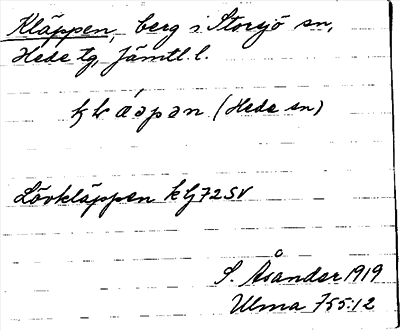 Kläppen, berg i Storsjö sn,
Hede tg, Jämtl. l.
(Hede sn)
Lövkläppen kbj 72 SV
S. Åsander 1919
Ulma 755:12